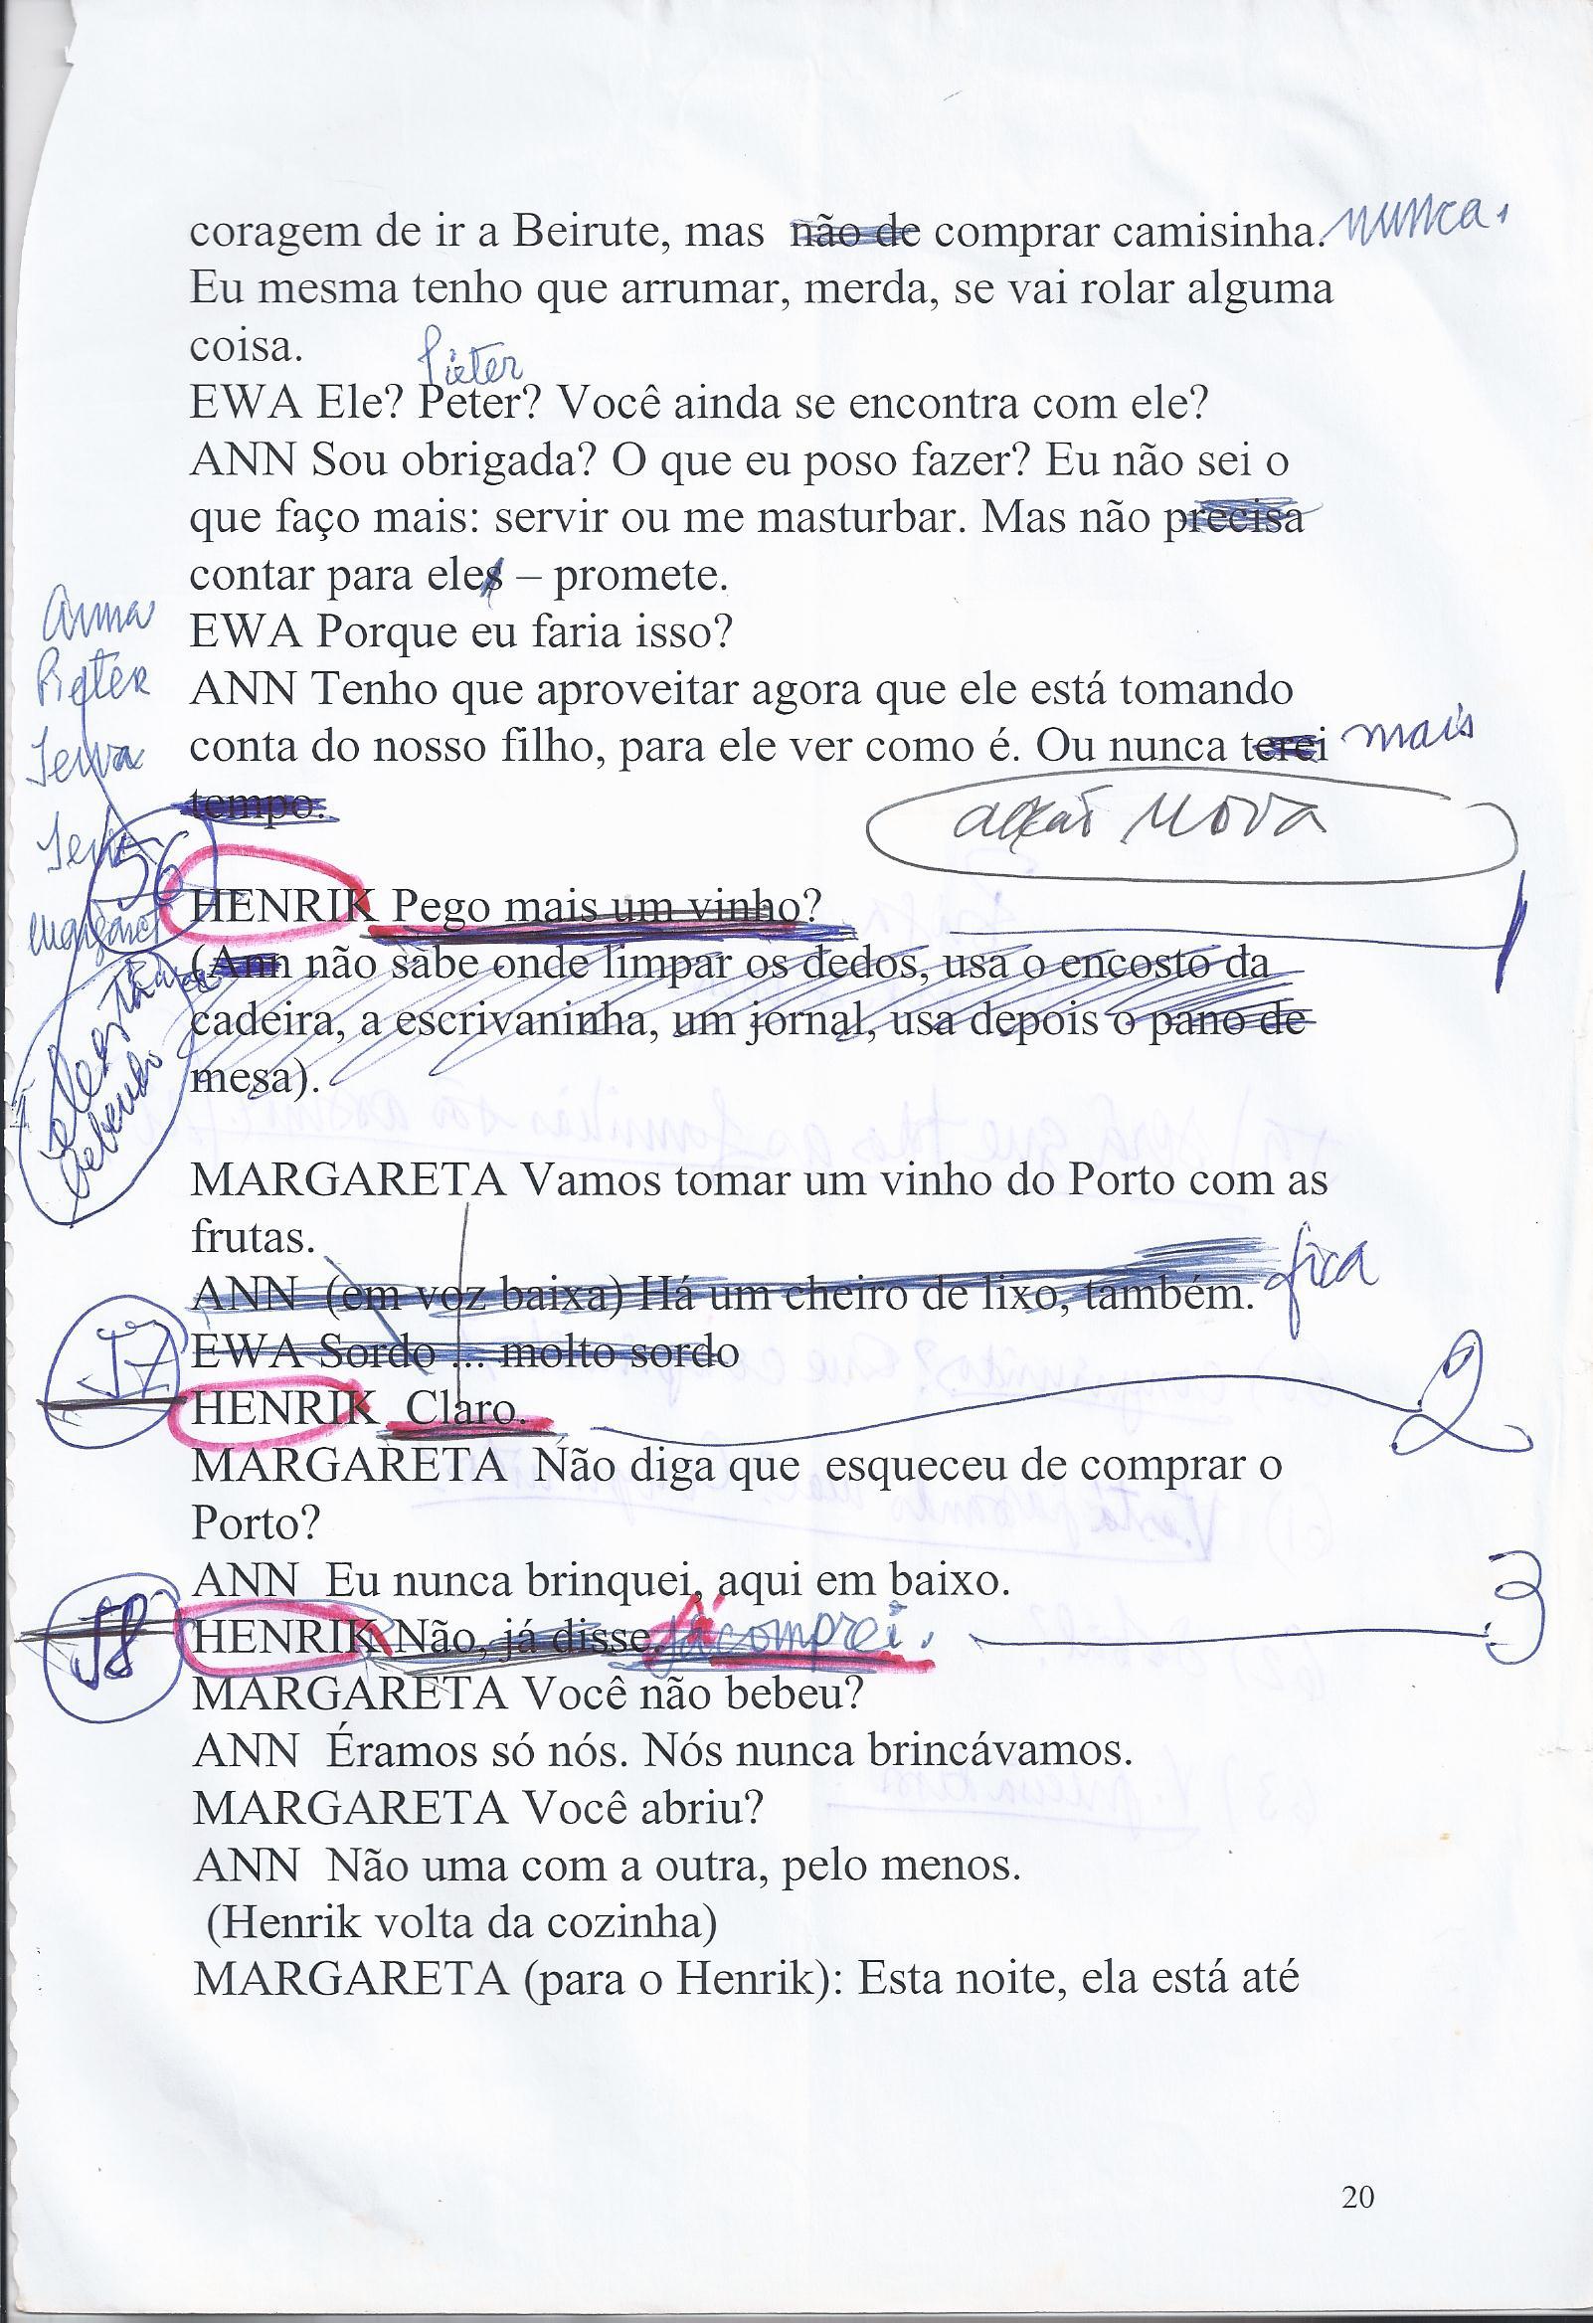 coragem de ir a Beirute, mas não de comprar camisinha. nunca.
Eu mesma tenho que arrumar, merda, se vai rolar alguma
coisa.
Pieter
EWA Ele? Peter? Você ainda se encontra com ele?
ANN Sou obrigada? O que eu poso fazer? Eu não sei o
que faço mais: servir ou me masturbar. Mas não precisa
contar para eles – promete.
Anna
EWA Porque eu faria isso?
Pieter
ANN Tenho que aproveitar agora que ele está tomando
conta do nosso filho, para ele ver como é. Ou nunca terei mais
tempo.
nova
56
HENRIK Pego mais um vinho?
1
(Ann não sabe onde limpar os dedos, usa o encosto da
cadeira, a escrivaninha, um jornal, usa depois o pano de
mesa).
ele está
bebendo
MARGARETA Vamos tomar um vinho do Porto com as
frutas.
ANN (em voz baixa) Há um cheiro de lixo, também. fica
EWA Sordo ... molto sordo
57
HENRIK Claro.
2
MARGARETA Não diga que esqueceu de comprar o
Porto?
ANN Eu nunca brinquei, aqui em baixo.
58
HENRIK Não, já disse. já comprei.
3
MARGARETA Você não bebeu?
ANN Éramos só nós. Nós nunca brincávamos.
MARGARETA Você abriu?
ANN Não uma com a outra, pelo menos.
(Henrik volta da cozinha)
MARGARETA (para o Henrik): Esta noite, ela está até
20